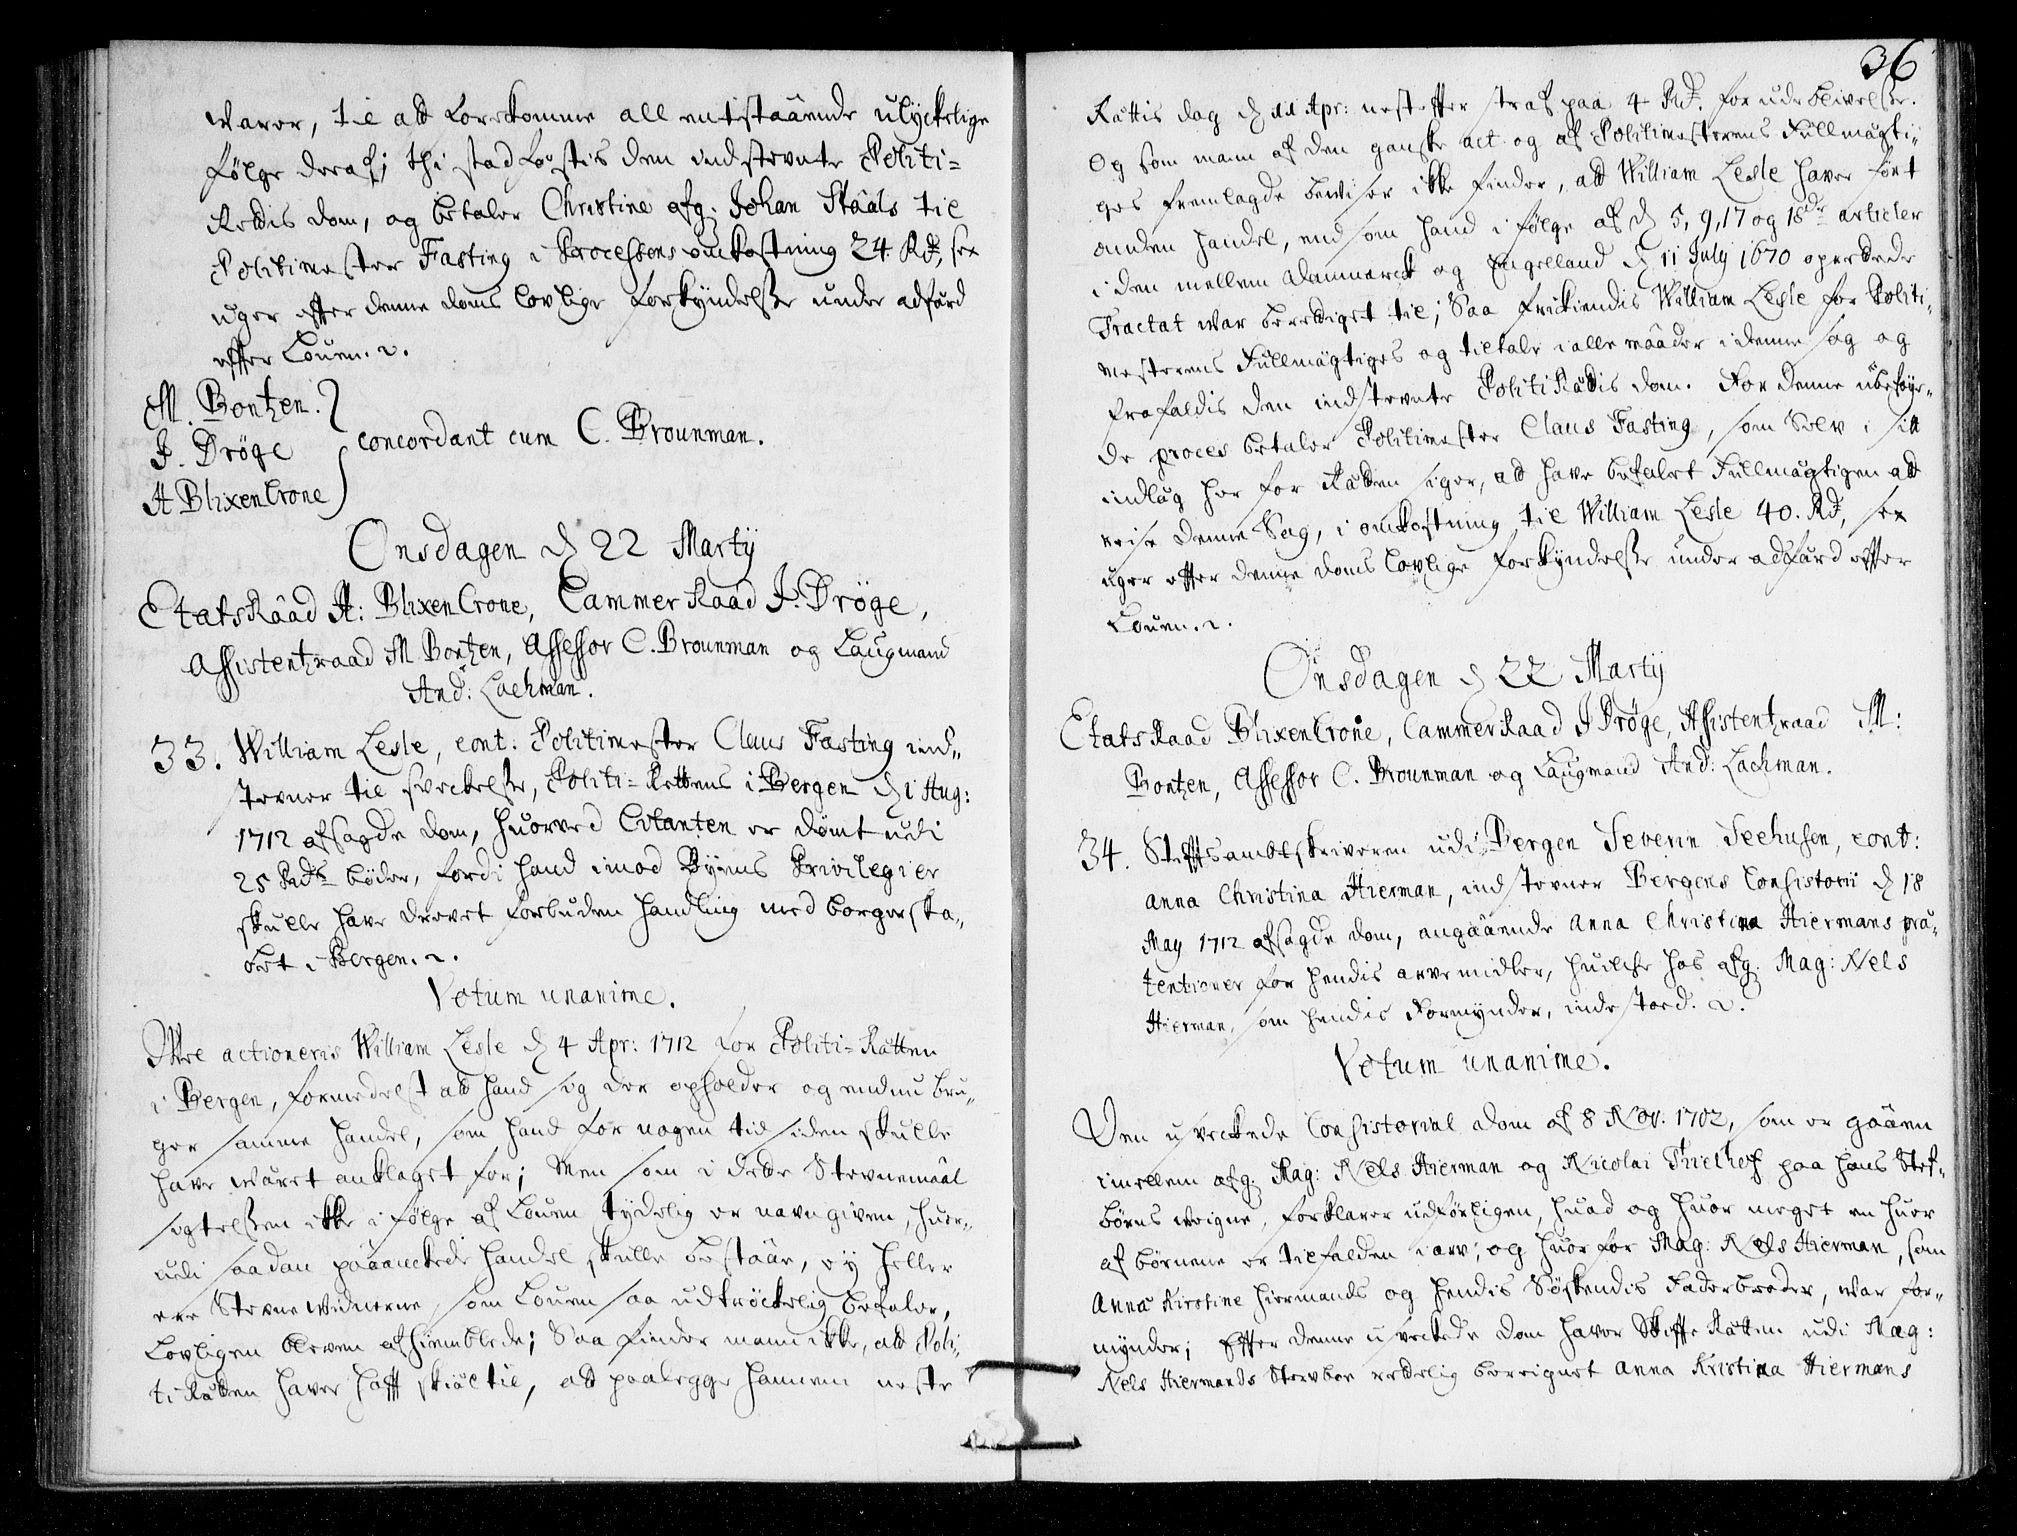 varer, til ald forekomme all entstaaende ulyckelige
følge deraf; thi stadfæstis den indstevnte Politi=
Rettis dom, og betaler Christine afg. Johan Stââls til
Politimester Fasting i Processens omkostning 24 Rdr, sex
uger effter denne doms lovlige forkyndelse under adfærd
effter Loven. etc.
M. Bontzen.
J. Drøge
A BlixenCrone
concordant cum C. Brounman.
Onsdagen d. 22 Martij
EtatsRâad A: BlixenCrone, CammerRaad J. Drøge,
Assistentzraad M Bontzen, Assessor C. Brounman og Laugmand
And: Lachman.
33. William Lesle, cont: Politimester Claus Fasting ind„
stevner til sveckelse, Politi=Rettens i Bergen d. 1 Aug:
1712 afsagde dom, huorved Citanten er dømt udi
25 Rdrs bøder, fordi hand imod Byens Privilegier
skulle have drevet forbuden handling med borgerska„
bet i Bergen. etc.
Votum unanime.
Vel actioneris William Lesle d. 4 Apr: 1712 for Politi=Rætten
i Bergen, formedelst ald hand sig der opholder og endnu bru„
ger samme handel, som hand for nogen tid siden skulle
have været anklaget for; Men som i dede Stevnemaal
sigtelsen ikke i følge af Loven tydelig er navngiven, huor„
udi saadan paaanckede handel skulle bestaae, ey heller
ere Stevnevidnerne, som Loven saa udtrøckelig befaler,
Lovligen bleven afhiemblede; Saa finder mann ikke, ald Poli„
tiRætten haver hafft skiæl til, ad paalegge hannem neste
36
Rættis dag d. 11 Apr: nest effter straf paa 4 Rdr. for udeblivelse.
Og som mann af den ganske act og af Politimesterens Fullmægti„
ges fremlagde beviser ikke finder, ald William Lesle haver ført
anden handel, end som hand i følge af d. 5, 9, 17 og 18de articler
i den mellem Dannarck og Engelland d. 11 July 1670 oprettede
Tractat var berettiget til; Saa frikiendis William Lesle for Politi„
mesterens Fullmægtiges og tiltale i alle maader i denne sag og
frafaldis den indstevnte PolitiRættis dom. For denne ubeføye„
de proces betaler Politimester Claus Fasting, som Selv i sitt
indlæg her for Rætten siger, ad have befalet Fullmægtigen ald
reise denne Sag, i omkostning til William Lesle 40. Rdr, sex
uger effter denne doms lovlige forkyndelse under adfærd effter
Loven. etc.
Onsdagen d. 22 Martij
EtatsRaad BlixenCrone, CammerRaad J Drøge, Assistentzraad M:
Bontzen, Assessor C. Brounman og Laugmand And: Lachman.
34. Stifftsambtskriveren udi Bergen Severin Seehusen, cont:
Anna Christina Hierman, indstevner Bergens Consistorii d. 18
May 1712 afsagde dom, angaaende Anna Christina Hiermans præ„
tentioner for hendis arvemidler, huilche hos afg. Mag: Nels
Hierman, som hendis Formynder, indestoed. etc.
Votum unanime.
Den usveckede Consistorial dom af 8 Nov. 1702, som er gââen
imellem afg. Mag: Nels Hierman og Nicolai Thielhof paa hans Stef„
børns veigne, forklarer udførligen, huad og huor meget en huer
af børnene er tilfalden i arv; og huor for Mag: Nels Hierman, som
Anna Kirstine Hiermands og hendis Søskendis Faderbroder, var for„
mynder; Effter denne usveckede dom haver SkiffteRætten udi Mag:
Nels Hiermands Stervboe redelig beregnet Anna Kristina Hiermans